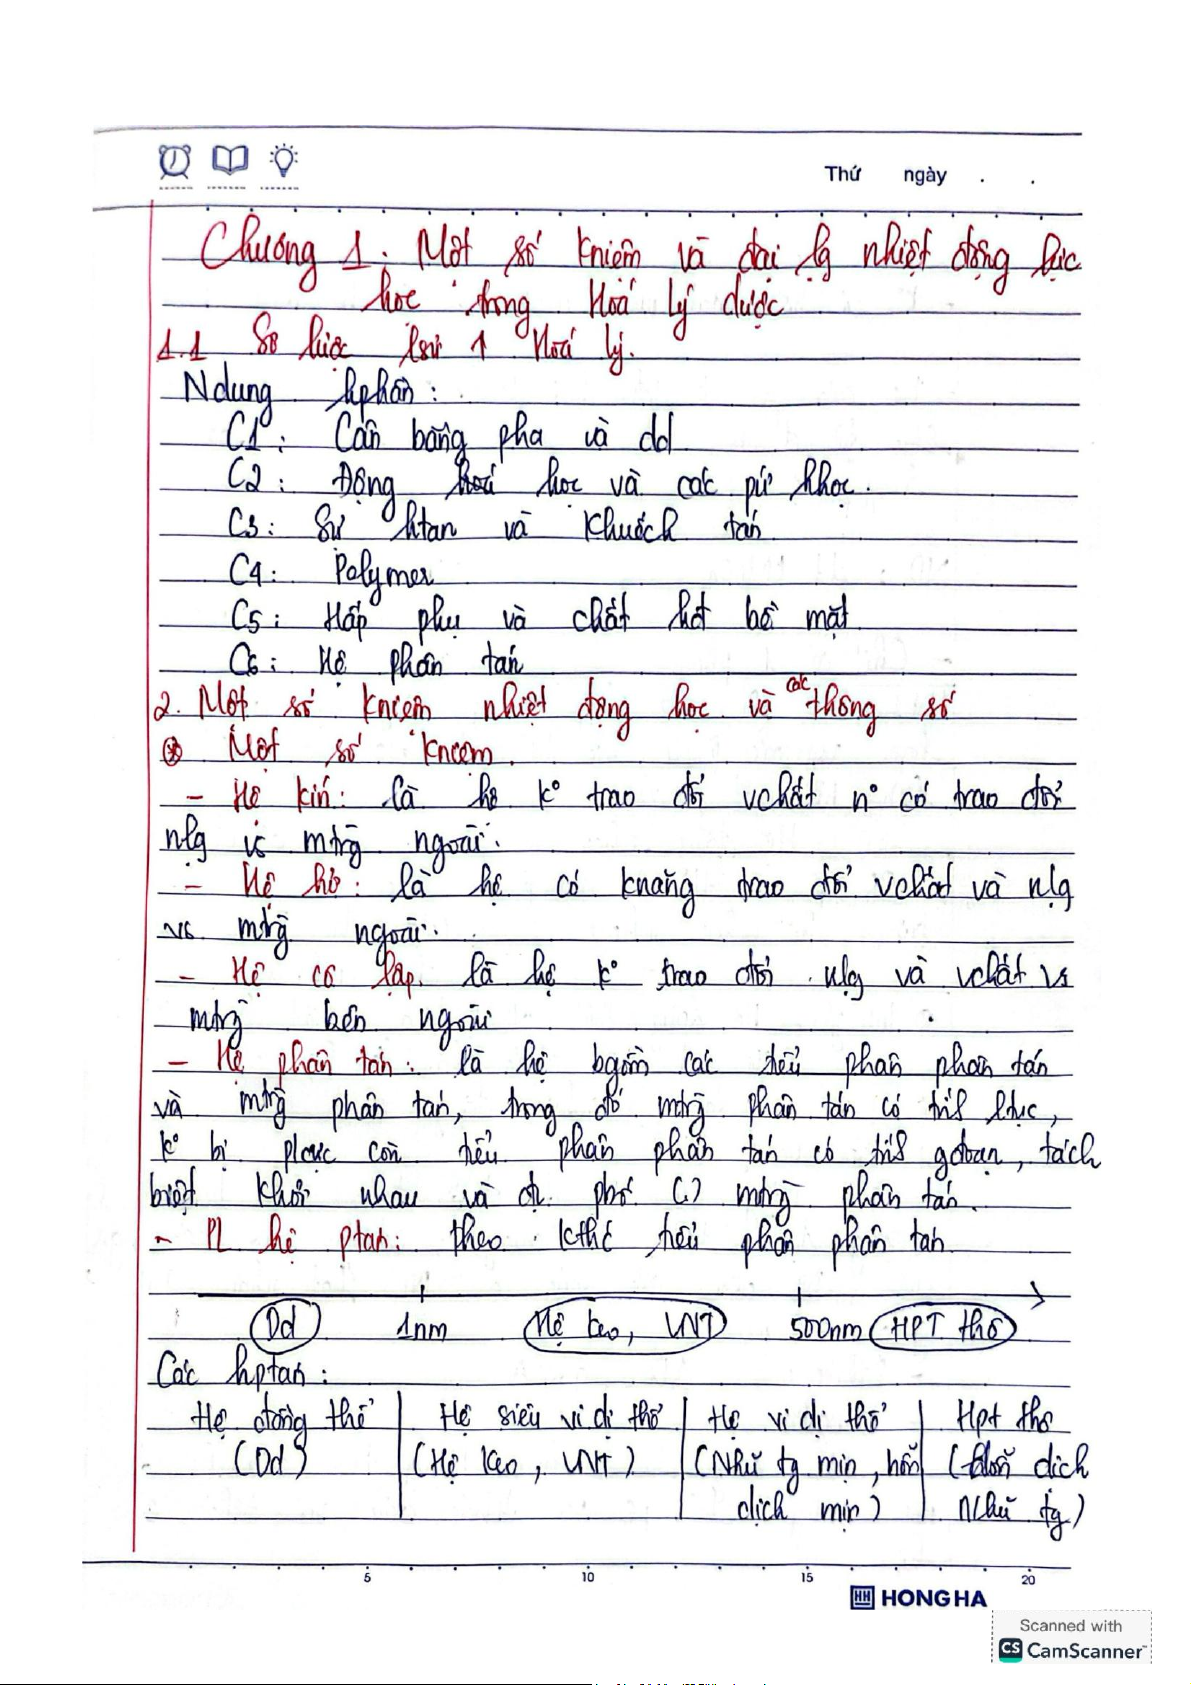 Thứ ngày . .
Chương 1. Một số kniệm và đại lg nhiệt động lực
học trong Hoá lý dược
1.1 Sơ lược lsử ↑ Hoá lý.
Ndung hphần:
C1: Cân bằng pha và dd
C2: Động hoá học và các pứ hhọc.
C3: Sự htan và khuếch tán
C4: Polymer
C5: Hấp phụ và chất hđ bề mặt
C6: Hệ phân tán
2. Một số kniệm nhiệt động học và các thông số
⊛ Một số kniệm.
- Hệ kín: là hệ k° trao đổi vchất n° có trao đổi
nlg vs mtrg ngoài.
- Hệ hở: là hệ có knăng trao đổi vchất và nlg
vs mtrg ngoài.
- Hệ cô lập. là hệ k° trao đổi nlg và vchất vs
mtrg bên ngoài
- Hệ phân tán: là hệ bgồm các tiểu phân phân tán
và mtrg phân tán, trong đó mtrg phân tán có tr/s ltục,
k° bị plcực còn tiểu phân phân tán có tr/s gđoạn, tách
biệt khỏi nhau và đc phố () mtrg phân tán.
- PL hệ ptán: theo kthc tiểu phân phân tán
Dd 1nm Hệ keo, VNT 500nm HPT thô
Các hptán:
Hệ đồng thể | Hệ siêu vi dị thể | Hệ vi dị thể | Hpt thô
(Dd) | (Hệ keo, VNT) | (Nhũ tg mịn, hỗn | (Hỗn dịch
dịch mịn) | Nhũ tg)
5 10 15 20
HH HONG HA
Scanned with
CS CamScanner